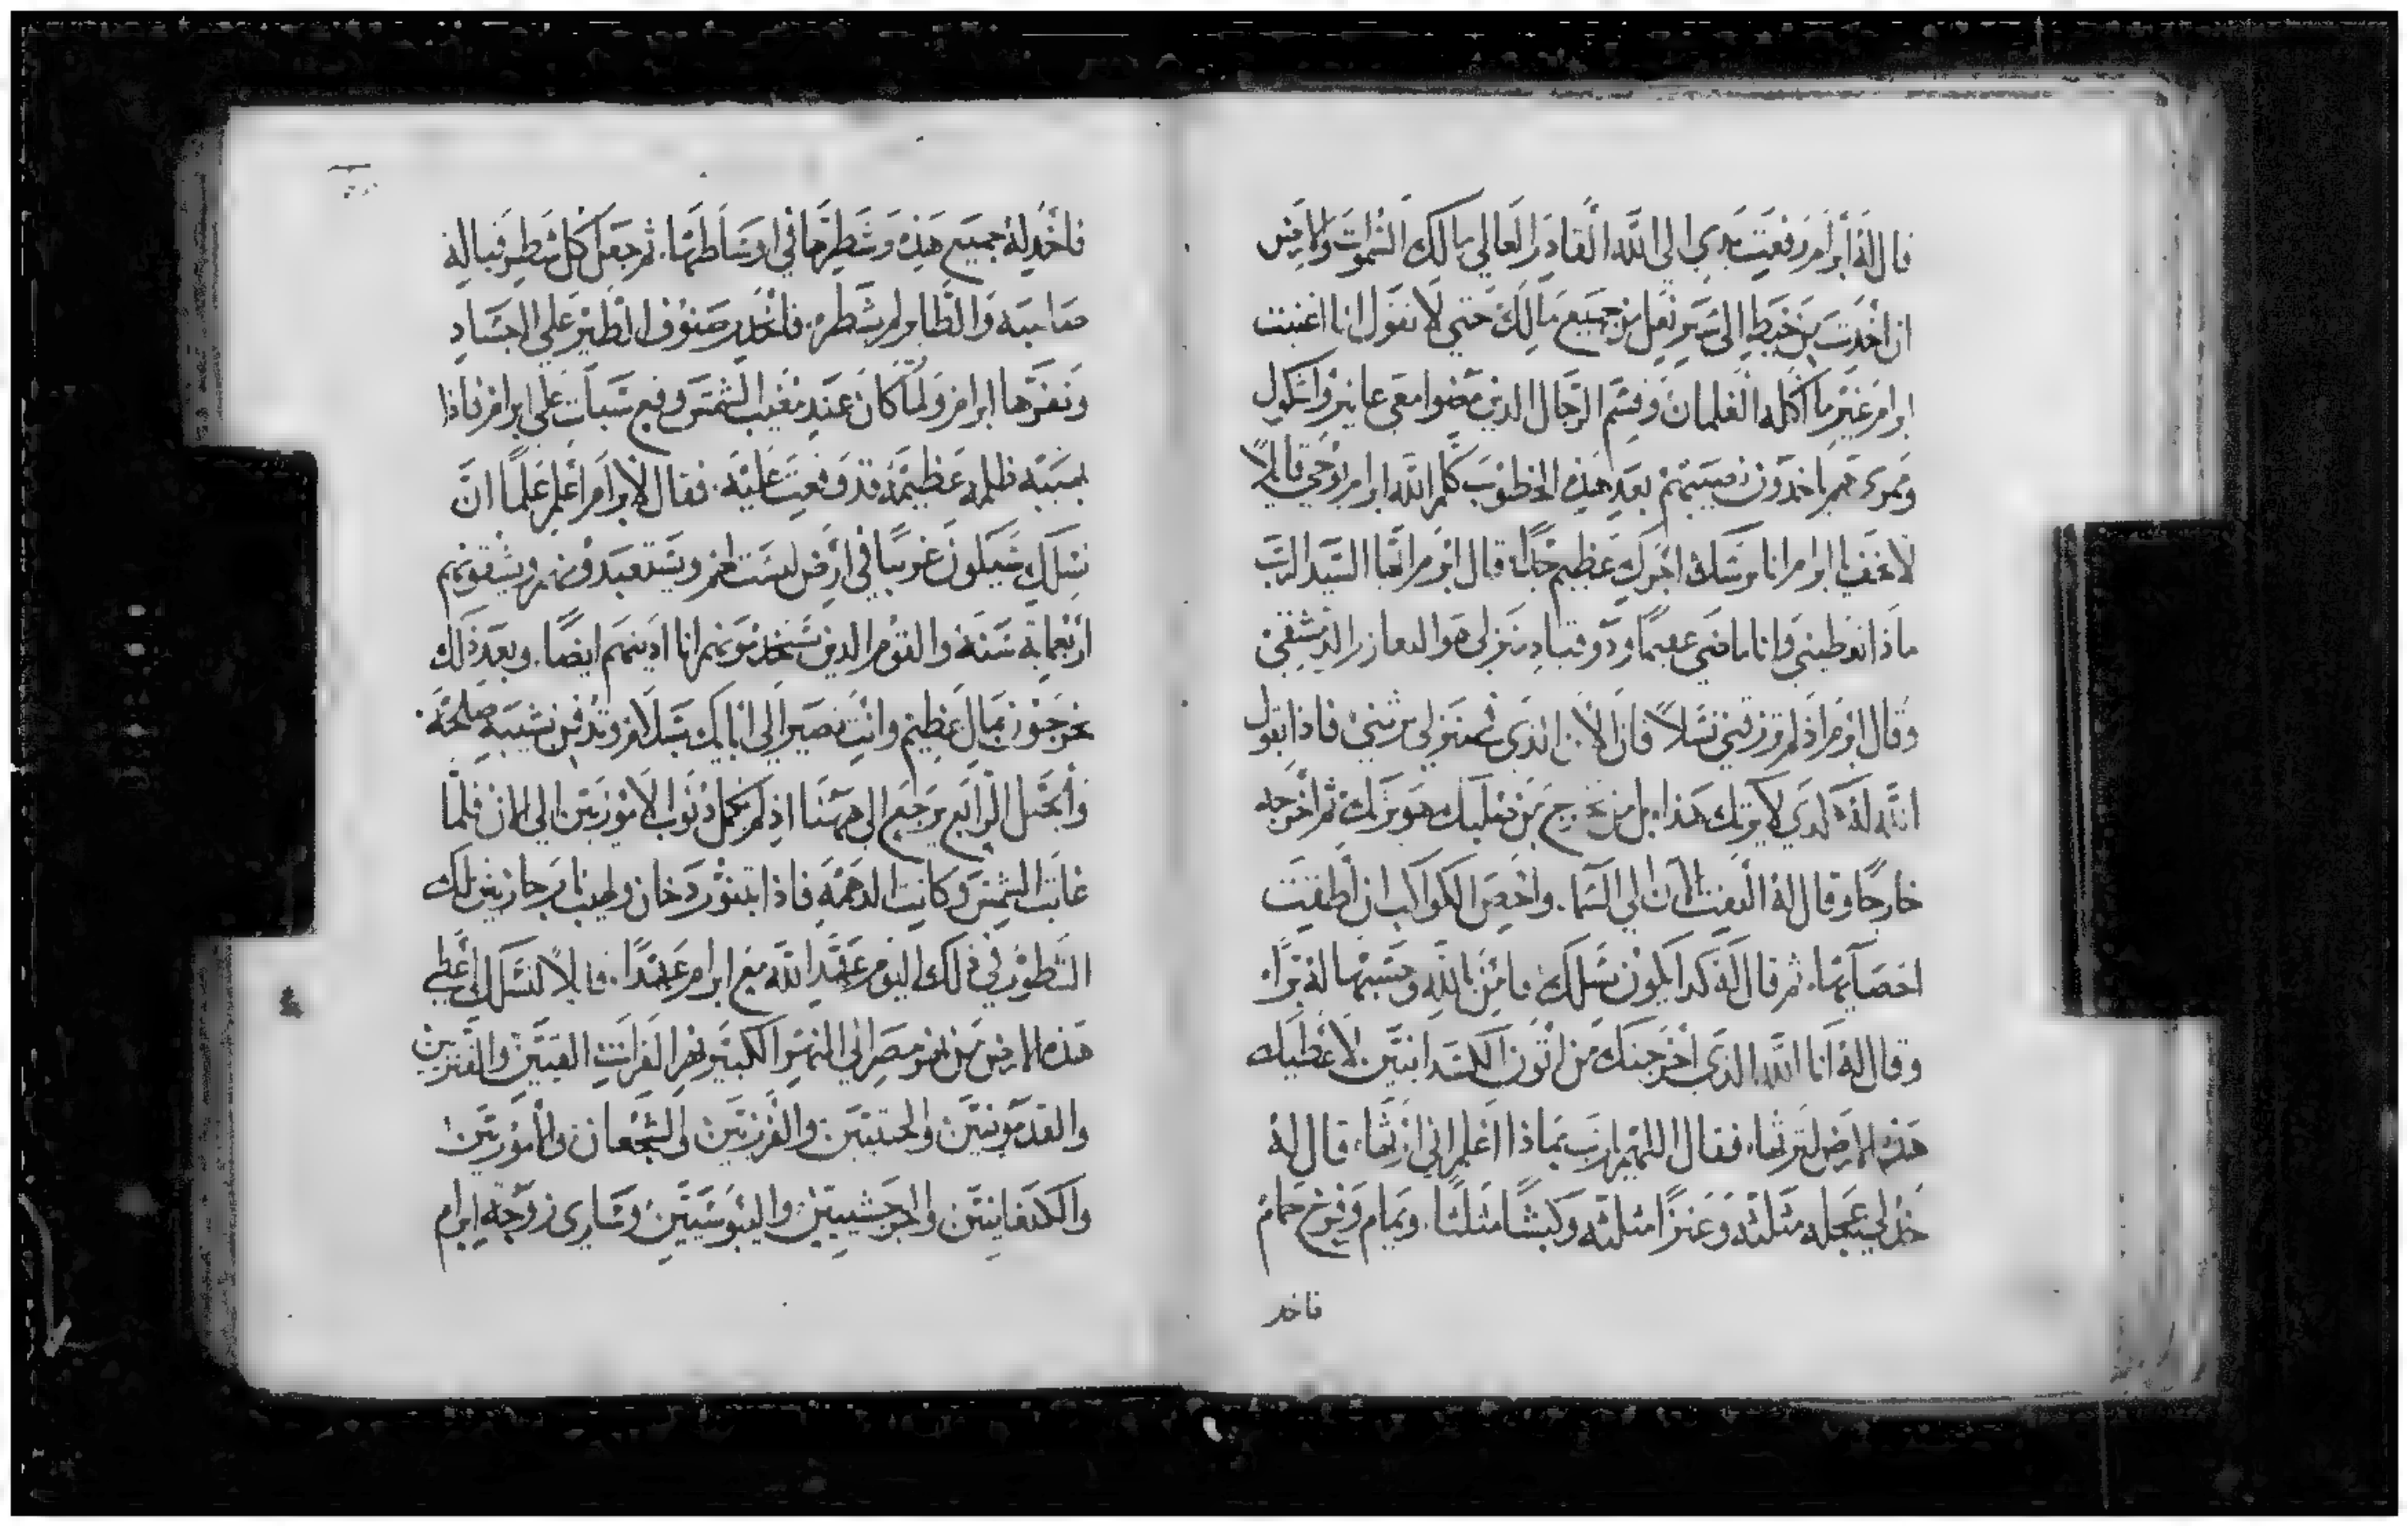 قال له أبرام رفعت يدي الى الله القادر العالي مالك السموات والارض
ان اخدت من خيط الى سير نعل من جميع مالك حتي لا تقول انا اغنيت
ابرام غير ما اكله الغلمان وقسم الرجال الدين مضوا معي عانير واشكول
وممرى هم ياخدون نصيبهم بعد هذه الخطوب كلم الله ابرام بوحي قايلا
لا تخف يا ابرام انا ترسك اجرك عظيم جدا قال ابرم ايها السيد الرب
ماذا تعطيني وانا ماضي عقيما ودو قياد منزلي هو العازر الدمشقي
وقال ابرم اذ لم ترزقني نسلا فان الابن الذي في منزلي يرثني فاذا بقول
الله له لا يرثك هذا بل من يخرج من صلبك هو يرثك ثم اخرجه
خارجا وقال له التفت الان الى السما واحص الكواكب ان اطقت
احصآيها ثم قال له كدا يكون نسلك فامن بالله وحسبها له برا
وقال له انا الله الذي اخرجتك من اتون الكسدانيين لاعطيك
هذه الارض لترثها فقال اللهم يارب بماذا اعلم اني ارثها قال له
خد لي عجله مثلثه وعنزا مثلثه وكبشا مثلثا ويمام وفرخ حمام
فاخد
فاخد له جميع هذه وشطرها في اوساطها ثم جعل كل شطر قبالة
صاحبه والطاير لم يشطره فانحدر صنوف الطير على الاجساد
ونفرها ابرام ولما كان عند مغيب الشمس وقع سبات على ابرام فاذا
بهيبه ظلمه عظيمه قد وقعت عليه فقال لابرام اعلم علما ان
نسلك سيكون غريبا في ارض ليست لهم ويستعبدونهم ويشقونهم
اربعماية سنة والقوم الدين سيخدمونهم انا ادينهم ايضا وبعد ذلك
يخرجون بمال عظيم وانت تصير الى ابايك بسلام وتدفن بشيبه صلحة
والجيل الرابع يرجع الى ههنا اذ لم تكمل ذنوب الامورين الى الان فلما
غابت الشمس وكانت الدهمه فاذا بتنور دخان ولهيب نار جاز بين تلك
الشطور في ذلك اليوم عقد الله مع ابرام عهدا قايلا لنسلك اعطي
هذه الارض من نهر مصر الي النهر الكبير نهر الفرات القينين والقنزين
والقدمونيين والحتيين والفرزيين والشجعان والاموريين
والكنعانيين والجرجشيين واليبوسيين وساري زوجة ابرام